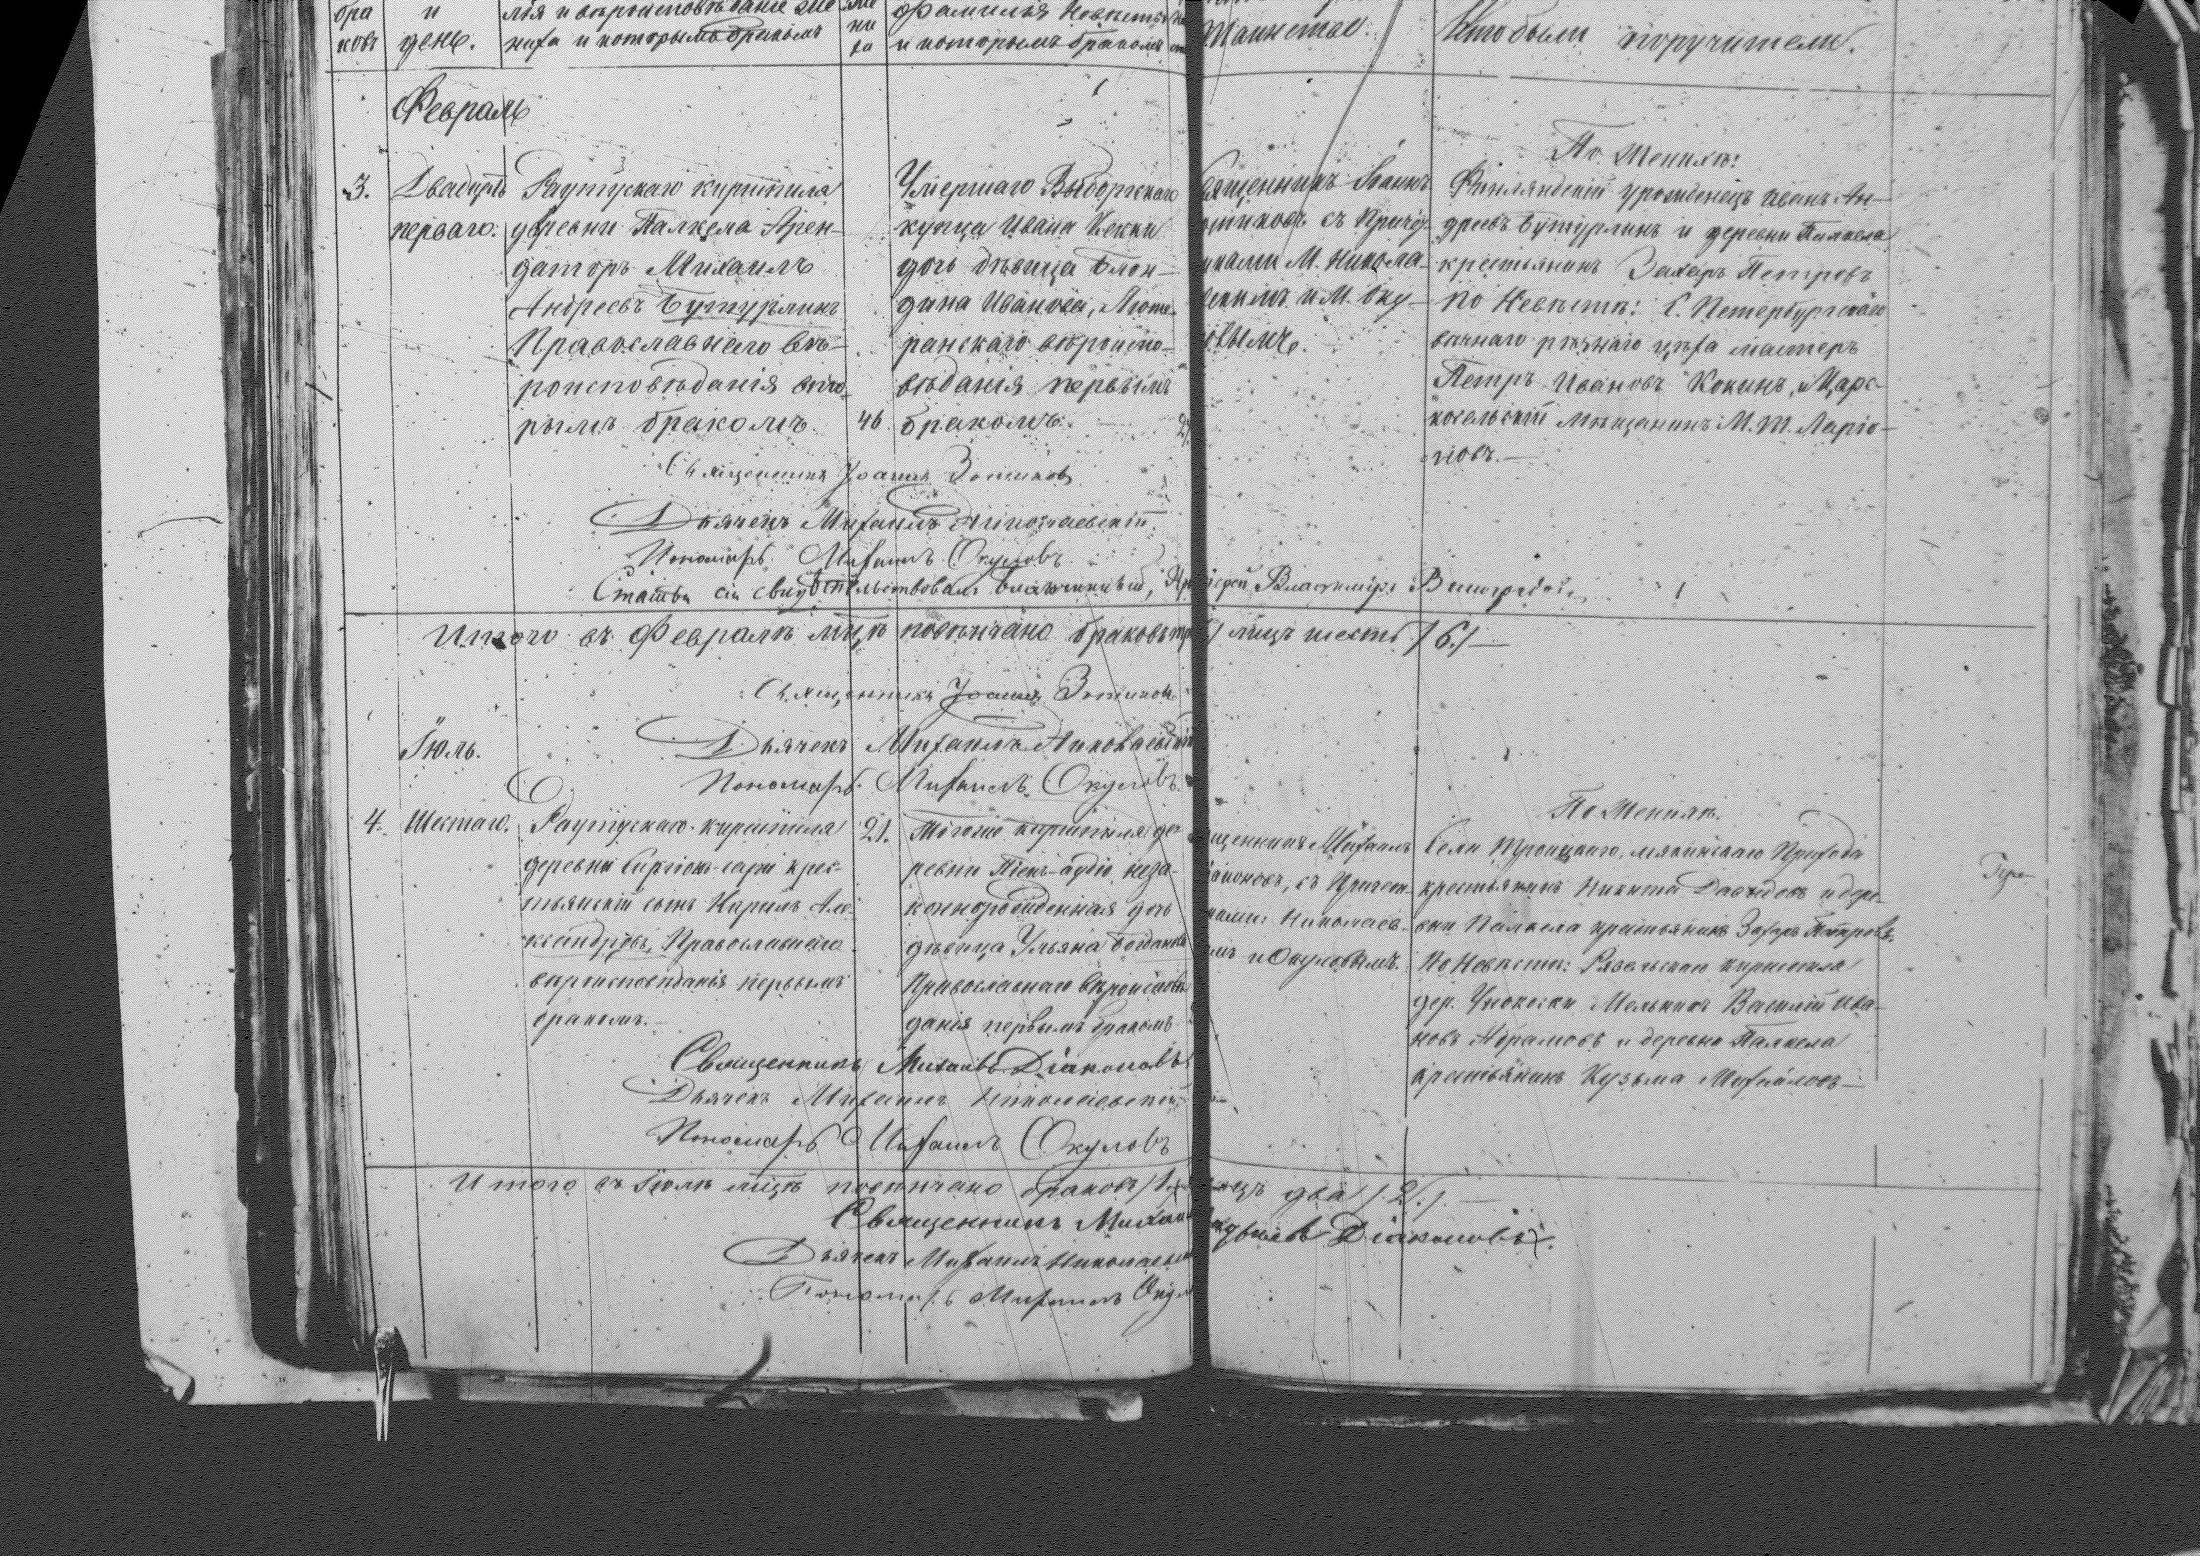 бра
ковъ
и
день.
лія и вѣроисповѣданіе же-
ниха и которымъ бракомъ
же
ни
ха
Фамилія Невѣсты
и которымъ бракомъ
Таинство.
Кто были поручители.
Февраль
3.
Двадцать
перваго.
Раутускаго кирхшпиля
деревни Палкела Арен-
даторъ Михаилъ
Андреевъ Бутурлинъ
Православнаго вѣ-
роисповѣданія вто-
рымъ бракомъ.
46
Умершаго Выборгскаго
купца Ивана
дочь дѣвица
дина Иванова, Люте-
ранскаго вѣроиспо-
вѣданія первымъ
бракомъ.
Священникъ Іоаннъ
Зотиковъ съ Причет-
никами М. Никола-
евскимъ и М. Оку-
ловымъ.
По Женихѣ:
Финляндскій уроженецъ Иванъ Ан-
дреевъ Бутурлинъ и деревни Палкела
крестьянинъ Захаръ Петровъ
По Невѣстѣ: С. Петербургскаго
цеха мастеръ
Петръ Ивановъ Кокинъ, Царс-
косельскій мѣщанинъ М. Т. Ларіо-
новъ.
Священникъ Іоаннъ Зотиковъ
Дьячекъ Михаилъ Николаевскій.
Пономарь Михаилъ Окуловъ
Статьи сіи свидѣтельствовалъ Благочинный, Іерей Владиміръ Виноградовъ
Итого въ Февралѣ мцѣ повѣнчано браковъ три лицъ шесть /6./
Священникъ Іоаннъ Зотиковъ
Дьячекъ Михаилъ Николаевскій
Пономарь Михаилъ Окуловъ.
Іюль.
4.
Шестаго.
Раутускаго кирхшпиля
деревни крес-
тьянскій сынъ Кирилъ Але-
ксандровъ, Православнаго
вѣроисповѣданія первымъ
бракомъ.
21.
Тогоже кирхшпиля де-
ревни неза-
коннорожденная дочь
дѣвица Ульяна Богданова
Православнаго вѣроисповѣ-
данія первымъ бракомъ
Священникъ Михаилъ
Діаконовъ, съ Причет-
никами: Николаев-
скимъ и Окуловымъ.
По Женихѣ.
Села Троицкаго, Прихода
крестьянинъ Никита Давыдовъ и дере-
вни Палкела крестьянинъ Захаръ Петровъ.
По Невѣстѣ: кирхшпиля
дер. Мельникъ Василій Ива-
новъ Абрамовъ и деревни Палкела
крестьянинъ Кузьма Михайловъ
Священникъ Михаилъ Діаконовъ
Дьячекъ Михаилъ Николаевскій
Пономарь Михаилъ Окуловъ
Итого въ Іюлѣ мцѣ повѣнчано браковъ /1./ лицъ два /2./
Священникъ Михаилъ Діаконовъ.
Дьячекъ Михаилъ Николаевскій
Пономарь Михаилъ Окуловъ